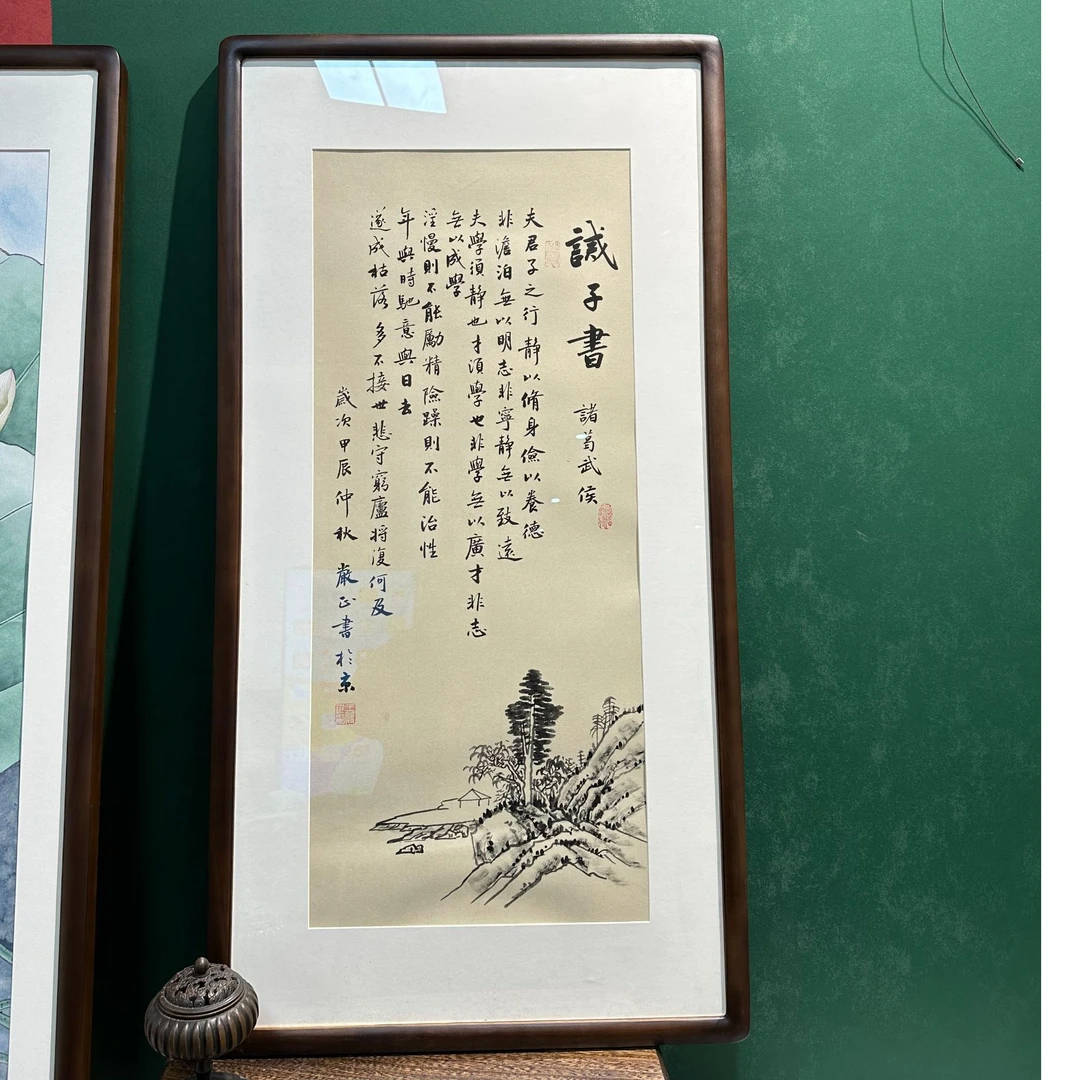 誡子書
諸葛武侯
夫君子之行靜以脩身儉以養德
非澹泊無以明志非寧靜無以致遠
夫學須靜也才須學也非學無以廣才非志
無以成學
淫慢則不能勵精險躁則不能治性
年與時馳意與日去
遂成枯落多不接世悲守窮廬將復何及
歲次甲辰仲秋 嚴正書於京